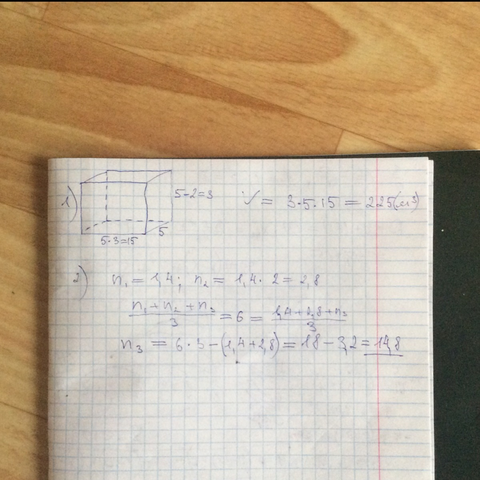 1) 5-2=3 V = 3·5·15 = 225(м³)
5
5·3=15
2) n₁ = 1,4; n₂ = 1,4·2 = 2,8
(n₁+n₂+n₃)/3 = 6 = (1,4+2,8+n₃)/3
n₃ = 6·3-(1,4+2,8) = 18-3,2 = 14,8